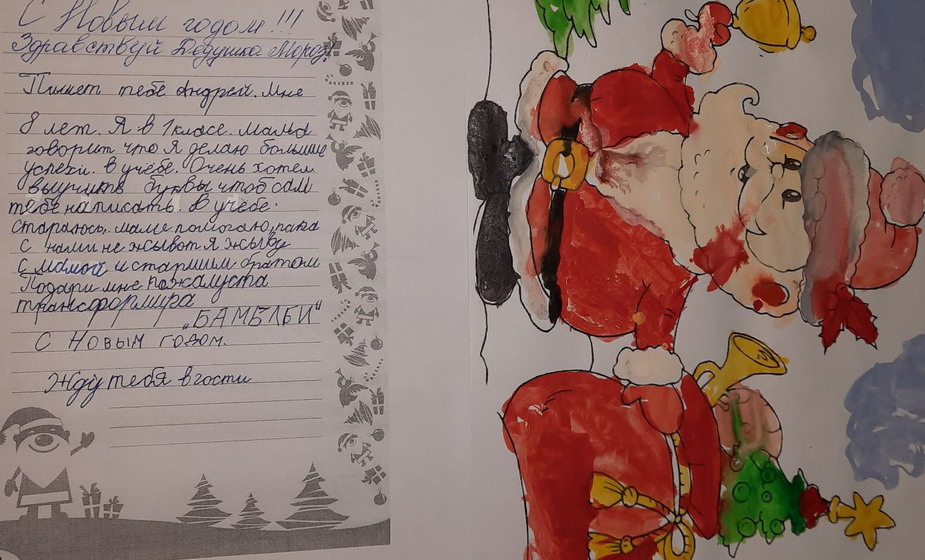 С Новым годом!!!
Здравствуй Дедушка Мороз!
Пишет тебе Андрей. Мне
8 лет. Я в 1 класе. мама
говорит что я делаю большие
успехи. в учёбе. Очень хотел
выучить буквы чтоб сам
тебе написать. В учёбе.
стараюсь. маме помогаю, папа
с нами не жывот я жыву
с мамой и старшим братом
Подари мне пожалуста
трансформира
„БАМБЛБИ"
С Новым годом.
Жду тебя в гости